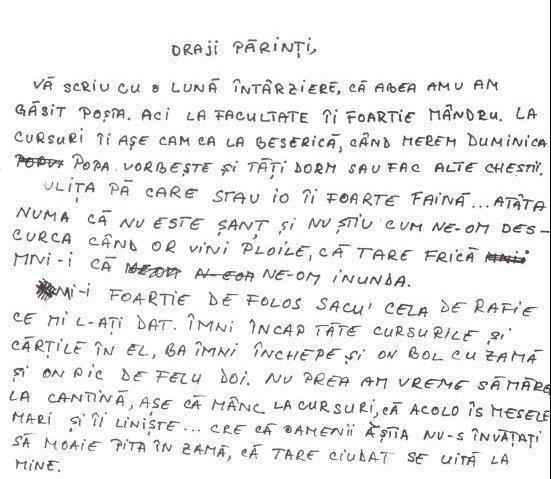 DRAJI PĂRINȚI,
VĂ SCRIU CU O LUNĂ ÎNTÂRZIERE, CĂ ABEA AMU AM
GĂSIT POȘTA. ACI LA FACULTATE ÎI FOARTIE MÂNDRU. LA
CURSURI ÎI AȘE CAM CA LA BESERICĂ, CÂND MEREM DUMINICA
POPA VORBEȘTE ȘI TĂȚI DORM SAU FAC ALTE CHESTII.
ULIȚA PĂ CARE STAU IO ÎI FOARTE FAINĂ... ATÂTA
NUMA CĂ NU ESTE ȘANȚ ȘI NU ȘTIU CUM NE-OM DES-
CURCA CÂND OR VINI PLOILE, CĂ TARE FRICĂ
MNI-I CĂ NE-OM INUNDA.
MI-I FOARTIE DE FOLOS SACU' CELA DE RAFIE
CE MI L-AȚI DAT. ÎMNI ÎNCAP TĂTE CURSURILE ȘI
CĂRȚILE ÎN EL, BA ÎMNI ÎNCHEPE ȘI ON BOL CU ZAMĂ
ȘI ON PIC DE FELU DOI. NU PREA AM VREME SĂ MĂRG
LA CANTINĂ, AȘE CĂ MÂNC LA CURSURI, CĂ ACOLO ÎS MESELE
MARI ȘI ÎI LINIȘTE... CRE CĂ OAMENII ĂȘTIA NU-S ÎNVĂȚAȚI
SĂ MOAIE PITA ÎN ZAMĂ, CĂ TARE CIUDAT SE UITĂ LA
MINE.